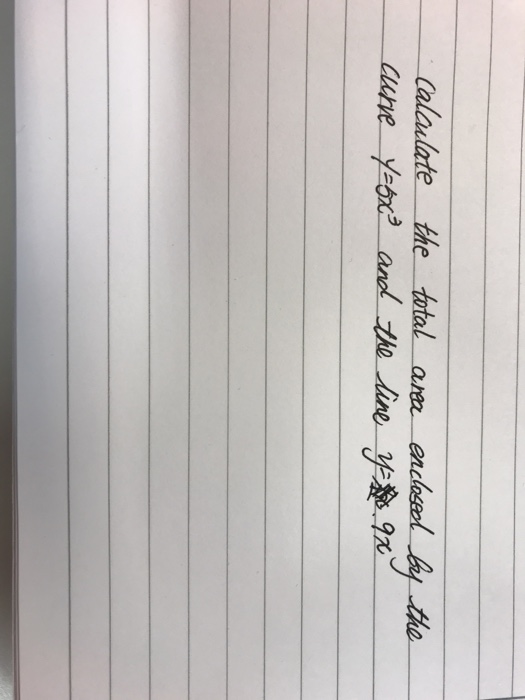 Calculate the total area enclosed by the
curve y=5x³ and the line y= 9x